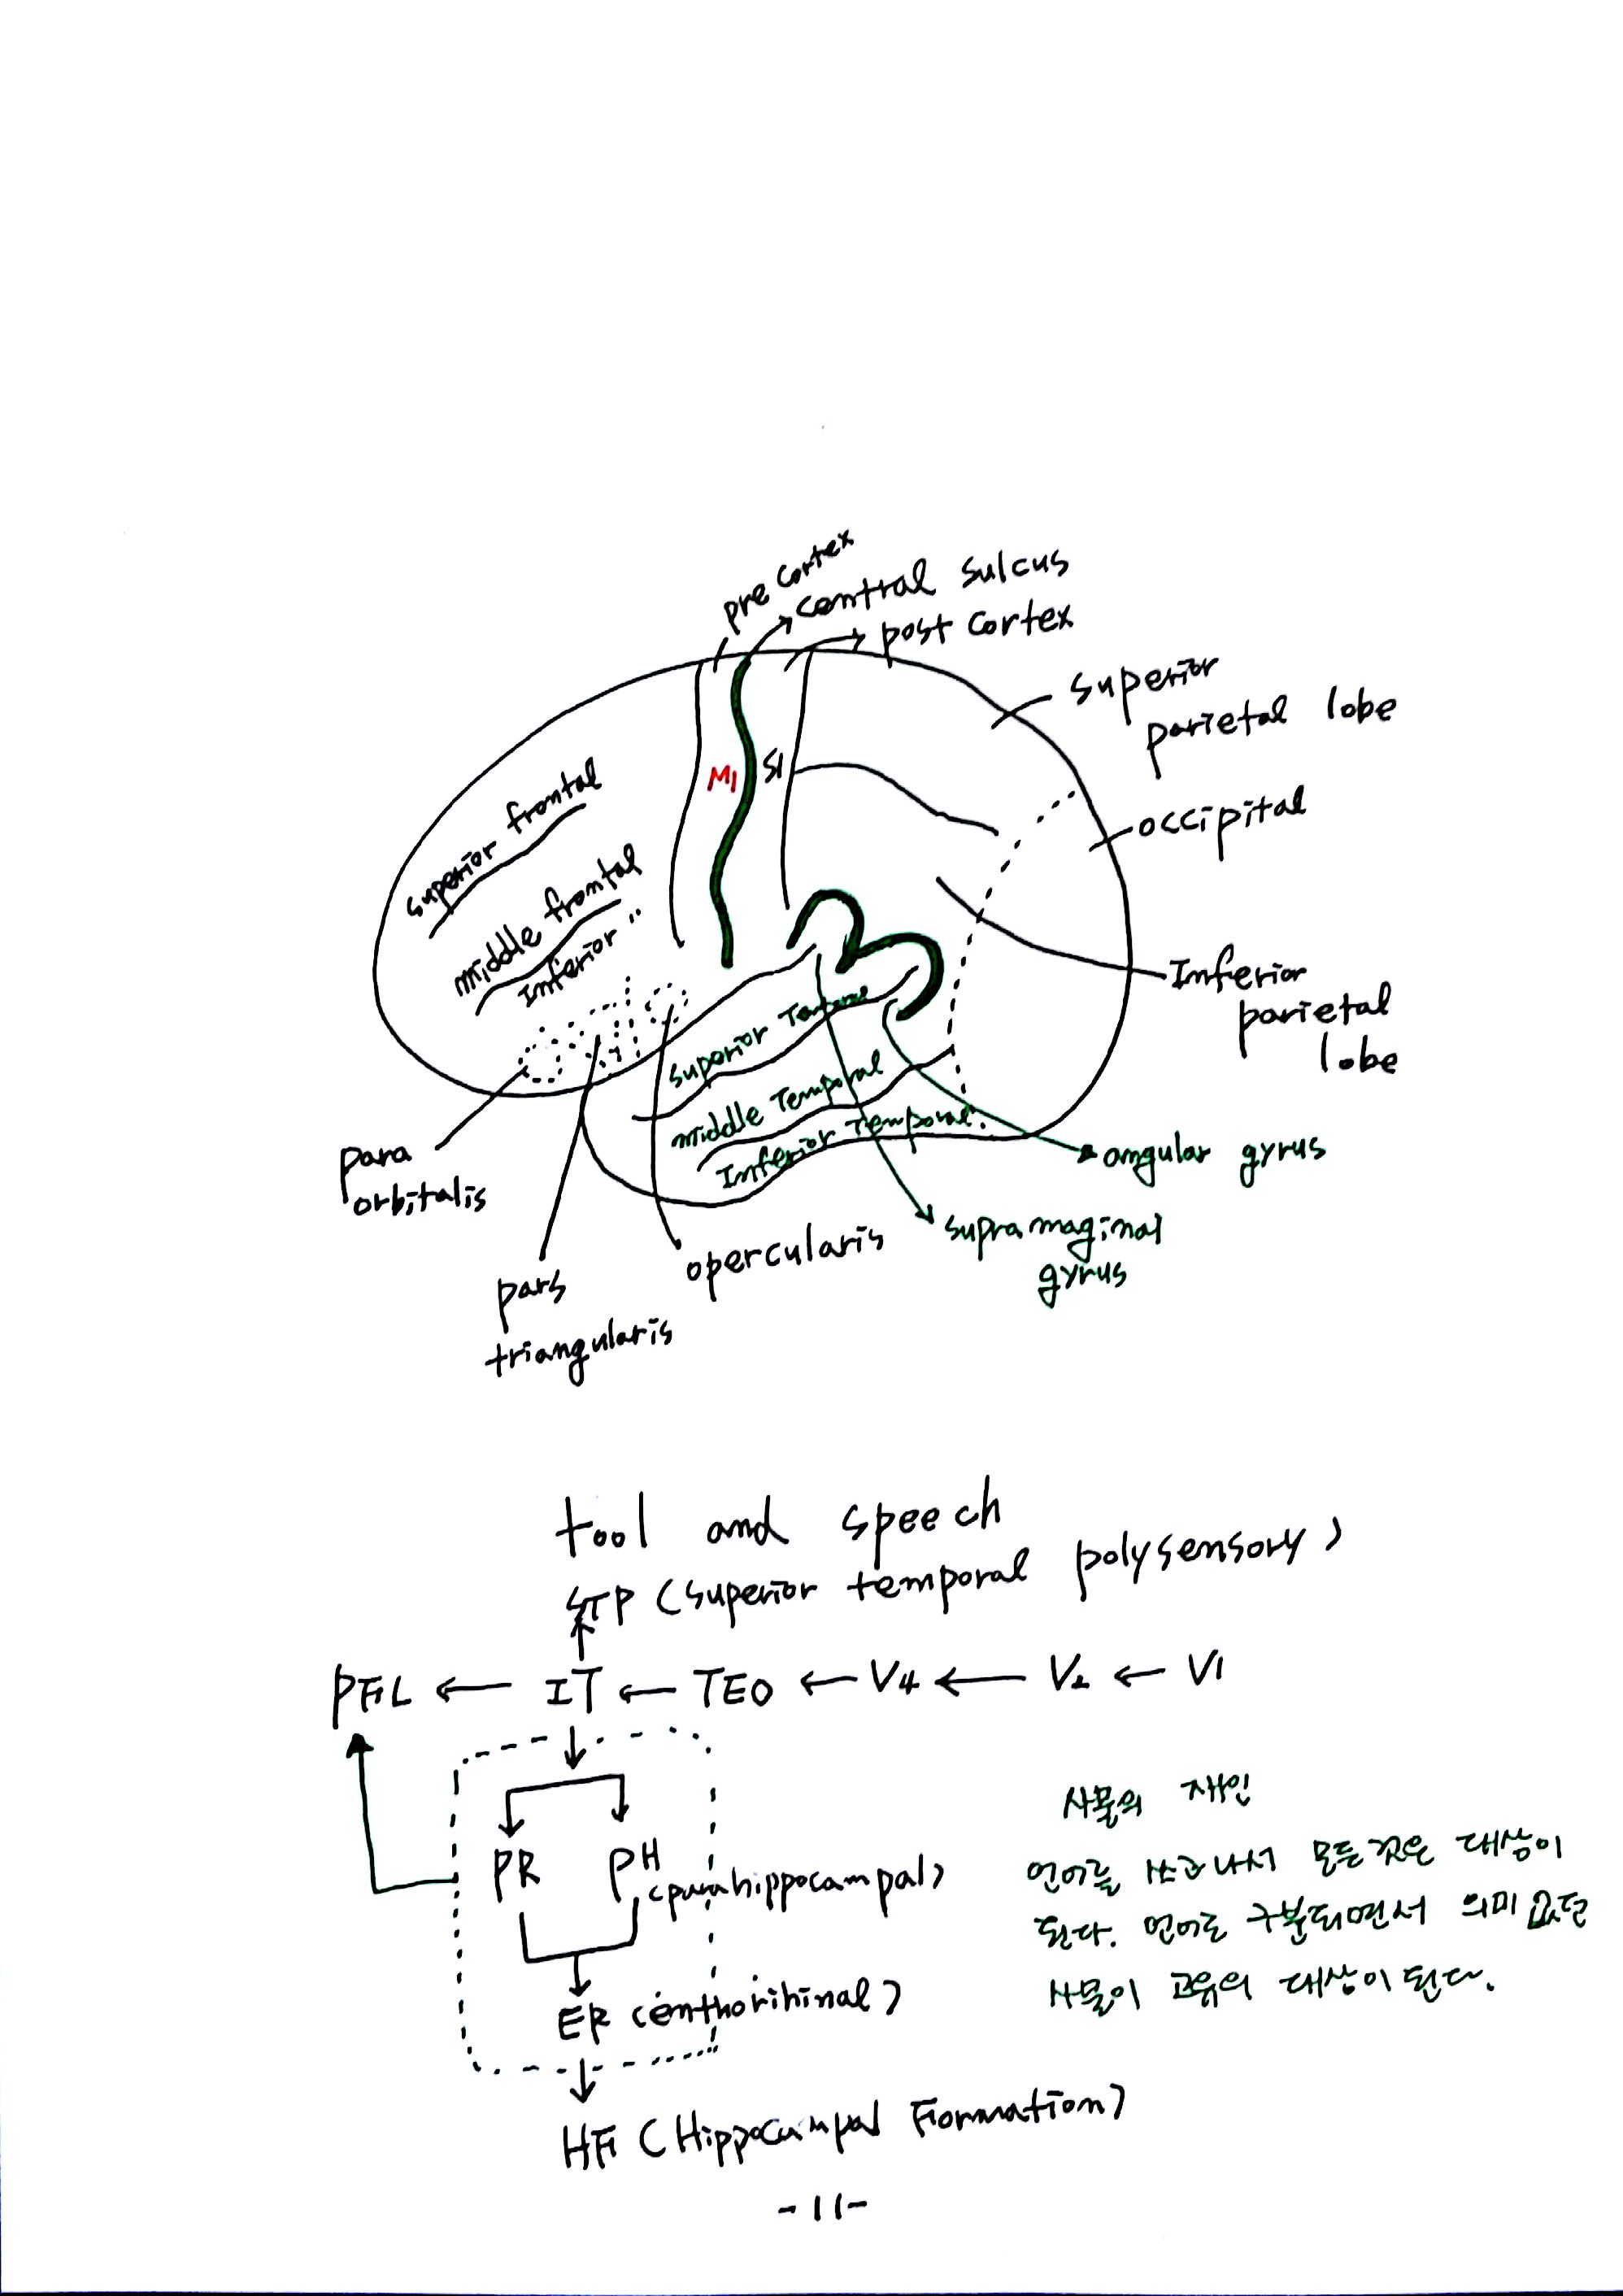 pre cortex
central sulcus
post cortex
superior
parietal lobe
occipital
M1
S1
superior frontal
middle frontal
Inferior "
Inferior
parietal
lobe
superior Temporal
middle Temporal
Inferior Temporal.
para
orbitalis
pars
triangularis
opercularis
angular gyrus
supramaginal
gyrus
tool and speech
STP (superior temporal polysensory)
PFL ← IT ← TEO ← V4 ← V2 ← V1
PR
PH
(parahippocampal)
ER (enthorihinal)
HF (Hippocampal Formation)
사물의 재인
언어를 쓰고나서 모든것은 대상이
된다. 언어로 구분되면서 의미없던
사물이 고유의 대상이 된다.
-11-